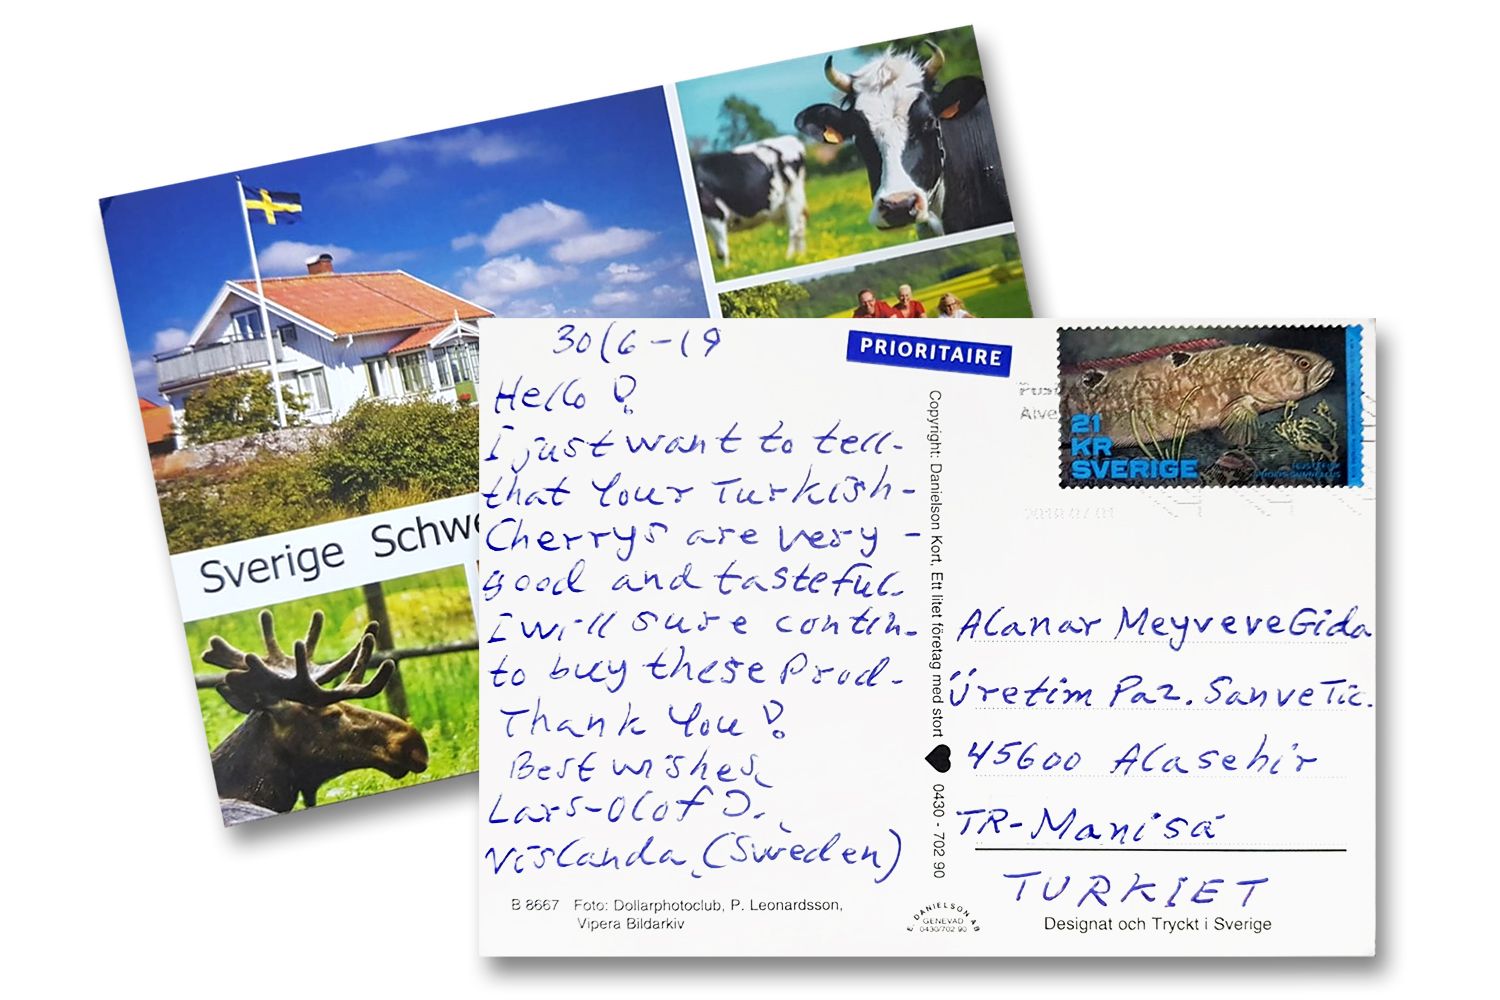 Sverige Schwe
30/6-19
Hello!
I just want to tell-
that Your Turkish-
Cherrys are very -
good and tasteful.
I will sure contin-
to buy these Prod-
Thank You!
Best wishes,
Lars-Olof J.,
Vislanda, (Sweden)
B 8667 Foto: Dollarphotoclub, P. Leonardsson,
Vipera Bildarkiv
Copyright: Danielson Kort, Ett litet företag med stort ♥ 0430 - 702 90
PRIORITAIRE
21
KR
SVERIGE
Alanar MeyveveGida
Üretim Paz. SanveTic.
45600 Alasehir
TR-Manisa
TURKIET
E. DANIELSON AB
GENEVAD
0430/702 90
Designat och Tryckt i Sverige